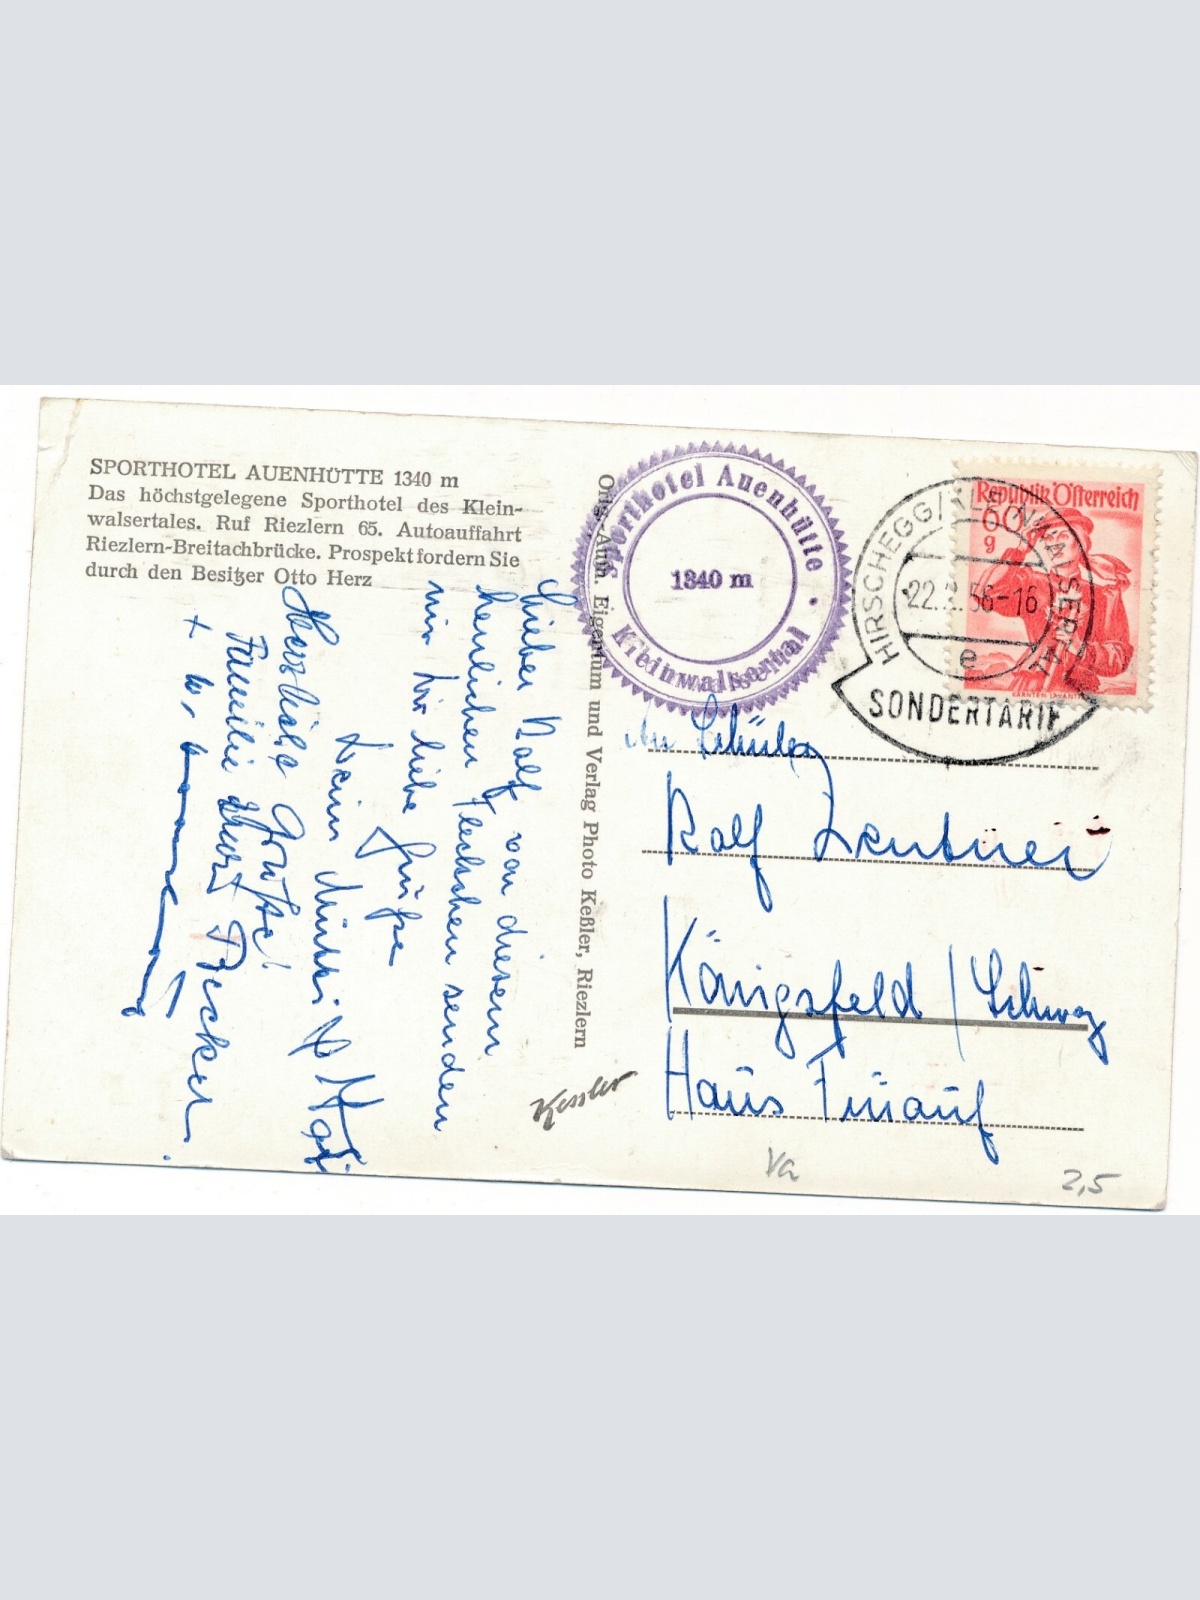 SPORTHOTEL AUENHÜTTE 1340 m
Das höchstgelegene Sporthotel des Klein-
walsertales. Ruf Riezlern 65. Autoauffahrt
Riezlern-Breitachbrücke. Prospekt fordern Sie
durch den Besitzer Otto Herz
Lieber Ralf von diesem
herrlichen Fleckchen senden
wir Dir liebe Grüße
Deine
Herzliche Grüße!
Familie Becker
Orig.-Aufn. Eigentum und Verlag Photo Keßler, Riezlern
Kessler
Sporthotel Auenhütte
1340 m
Kleinwalsertal
Republik Österreich
60
g
KÄRNTEN
HIRSCHEGG/KLEINWALSERTAL
22. 56-16
e
SONDERTARIF
An Schüler
Ralf Zentner
Königsfeld / Schwaz
Haus
2,5